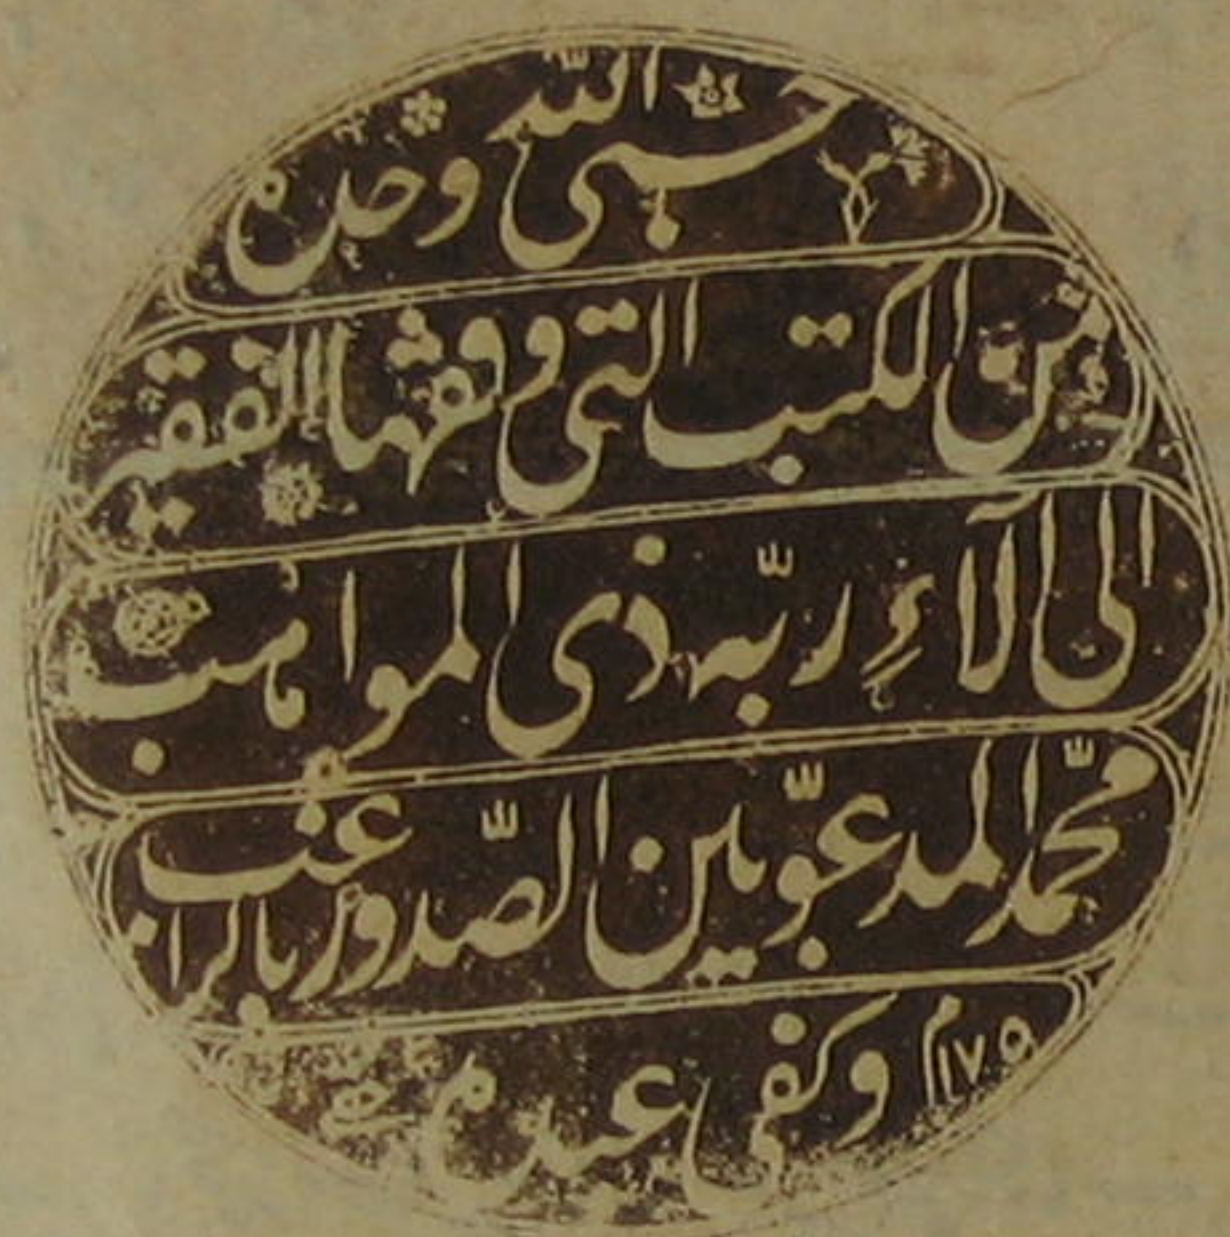 حسبى الله وحده
من الكتب التى وقفها الفقير
الى آلاءِ ربّه ذى المواهب
محمّد المدعوّ بين الصّدور بالراغب
وكفى عبده ١١٧٥